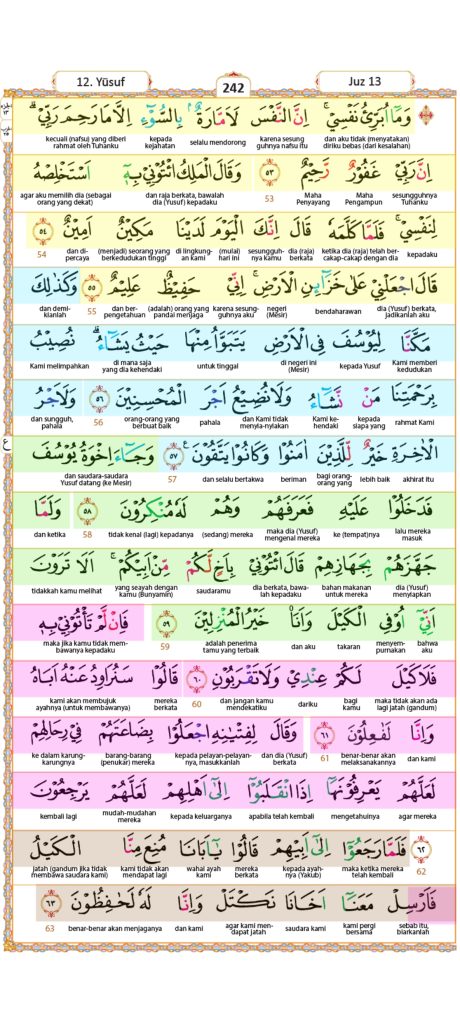 12. Yūsuf
242
Juz 13
۞ وَمَآ اُبَرِّئُ نَفْسِيْۚ اِنَّ النَّفْسَ لَاَمَّارَةٌ ۢ بِالسُّوْۤءِ اِلَّا مَا رَحِمَ رَبِّيْۗ
dan aku tidak (menyatakan) diriku bebas (dari kesalahan) karena sesungguhnya nafsu itu selalu mendorong kepada kejahatan kecuali (nafsu) yang diberi rahmat oleh Tuhanku
اِنَّ رَبِّيْ غَفُوْرٌ رَّحِيْمٌ ٥٣ وَقَالَ الْمَلِكُ ائْتُوْنِيْ بِهٖٓ اَسْتَخْلِصْهُ
sesungguhnya Tuhanku Maha Pengampun Maha Penyayang 53 dan raja berkata, bawalah dia (Yusuf) kepadaku agar aku memilih dia (sebagai orang yang dekat)
لِنَفْسِيْۚ فَلَمَّا كَلَّمَهٗ قَالَ اِنَّكَ الْيَوْمَ لَدَيْنَا مَكِيْنٌ اَمِيْنٌ ٥٤
kepadaku ketika dia (raja) telah bercakap-cakap dengan dia dia (raja) berkata sesungguhnya kamu (mulai) hari ini di lingkungan kami (menjadi) seorang yang berkedudukan tinggi dan dipercaya 54
قَالَ اجْعَلْنِيْ عَلٰى خَزَاۤىِٕنِ الْاَرْضِۚ اِنِّيْ حَفِيْظٌ عَلِيْمٌ ٥٥ وَكَذٰلِكَ
dia (Yusuf) berkata, jadikanlah aku bendaharawan negeri (Mesir) karena sesungguhnya aku (adalah) orang yang pandai menjaga dan berpengetahuan 55 dan demikianlah
مَكَّنَّا لِيُوْسُفَ فِى الْاَرْضِ يَتَبَوَّاُ مِنْهَا حَيْثُ يَشَاۤءُۗ نُصِيْبُ
Kami memberi kedudukan kepada Yusuf di negeri ini (Mesir) untuk tinggal di mana saja yang dia kehendaki Kami melimpahkan
بِرَحْمَتِنَا مَنْ نَّشَاۤءُ وَلَا نُضِيْعُ اَجْرَ الْمُحْسِنِيْنَ ٥٦ وَلَاَجْرُ
rahmat Kami kepada siapa yang Kami kehendaki dan Kami tidak menyia-nyiakan pahala orang-orang yang berbuat baik 56 dan sungguh, pahala
الْاٰخِرَةِ خَيْرٌ لِّلَّذِيْنَ اٰمَنُوْا وَكَانُوْا يَتَّقُوْنَ ٥٧ وَجَاۤءَ اِخْوَةُ يُوْسُفَ
akhirat itu lebih baik bagi orang-orang yang beriman dan selalu bertakwa 57 dan saudara-saudara Yusuf datang (ke Mesir)
فَدَخَلُوْا عَلَيْهِ فَعَرَفَهُمْ وَهُمْ لَهٗ مُنْكِرُوْنَ ٥٨ وَلَمَّا
lalu mereka masuk ke (tempat)nya maka dia (Yusuf) mengenal mereka (sedang) mereka tidak kenal (lagi) kepadanya 58 dan ketika
جَهَّزَهُمْ بِجَهَازِهِمْ قَالَ ائْتُوْنِيْ بِاَخٍ لَّكُمْ مِّنْ اَبِيْكُمْۚ اَلَا تَرَوْنَ
dia (Yusuf) menyiapkan bahan makanan untuk mereka dia berkata, bawalah kepadaku saudaramu yang seayah dengan kamu (Bunyamin) tidakkah kamu melihat
اَنِّيْٓ اُوْفِى الْكَيْلَ وَاَنَا۠ خَيْرُ الْمُنْزِلِيْنَ ٥٩ فَاِنْ لَّمْ تَأْتُوْنِيْ بِهٖ
bahwa aku menyempurnakan takaran dan aku adalah penerima tamu yang terbaik 59 maka jika kamu tidak membawanya kepadaku
فَلَا كَيْلَ لَكُمْ عِنْدِيْ وَلَا تَقْرَبُوْنِ ٦٠ قَالُوْا سَنُرَاوِدُ عَنْهُ اَبَاهُ
maka tidak akan ada lagi jatah (gandum) bagi kamu dariku dan jangan kamu mendekatiku 60 mereka berkata kami akan membujuk ayahnya (untuk membawanya)
وَاِنَّا لَفٰعِلُوْنَ ٦١ وَقَالَ لِفِتْيٰنِهِ اجْعَلُوْا بِضَاعَتَهُمْ فِيْ رِحَالِهِمْ
dan kami benar-benar akan melaksanakannya 61 dan dia (Yusuf) berkata kepada pelayan-pelayannya, masukkanlah barang-barang (penukar) mereka ke dalam karung-karungnya
لَعَلَّهُمْ يَعْرِفُوْنَهَآ اِذَا انْقَلَبُوْٓا اِلٰٓى اَهْلِهِمْ لَعَلَّهُمْ يَرْجِعُوْنَ
agar mereka mengetahuinya apabila telah kembali kepada keluarganya mudah-mudahan mereka kembali lagi
٦٢ فَلَمَّا رَجَعُوْٓا اِلٰٓى اَبِيْهِمْ قَالُوْا يٰٓاَبَانَا مُنِعَ مِنَّا الْكَيْلُ
62 maka ketika mereka telah kembali kepada ayahnya (Yakub) mereka berkata wahai ayah kami kami tidak akan mendapat lagi jatah (gandum jika tidak membawa saudara kami)
فَاَرْسِلْ مَعَنَآ اَخَانَا نَكْتَلْ وَاِنَّا لَهٗ لَحٰفِظُوْنَ ٦٣
sebab itu, biarkanlah kami pergi bersama saudara kami agar kami mendapat jatah dan kami benar-benar akan menjaganya 63